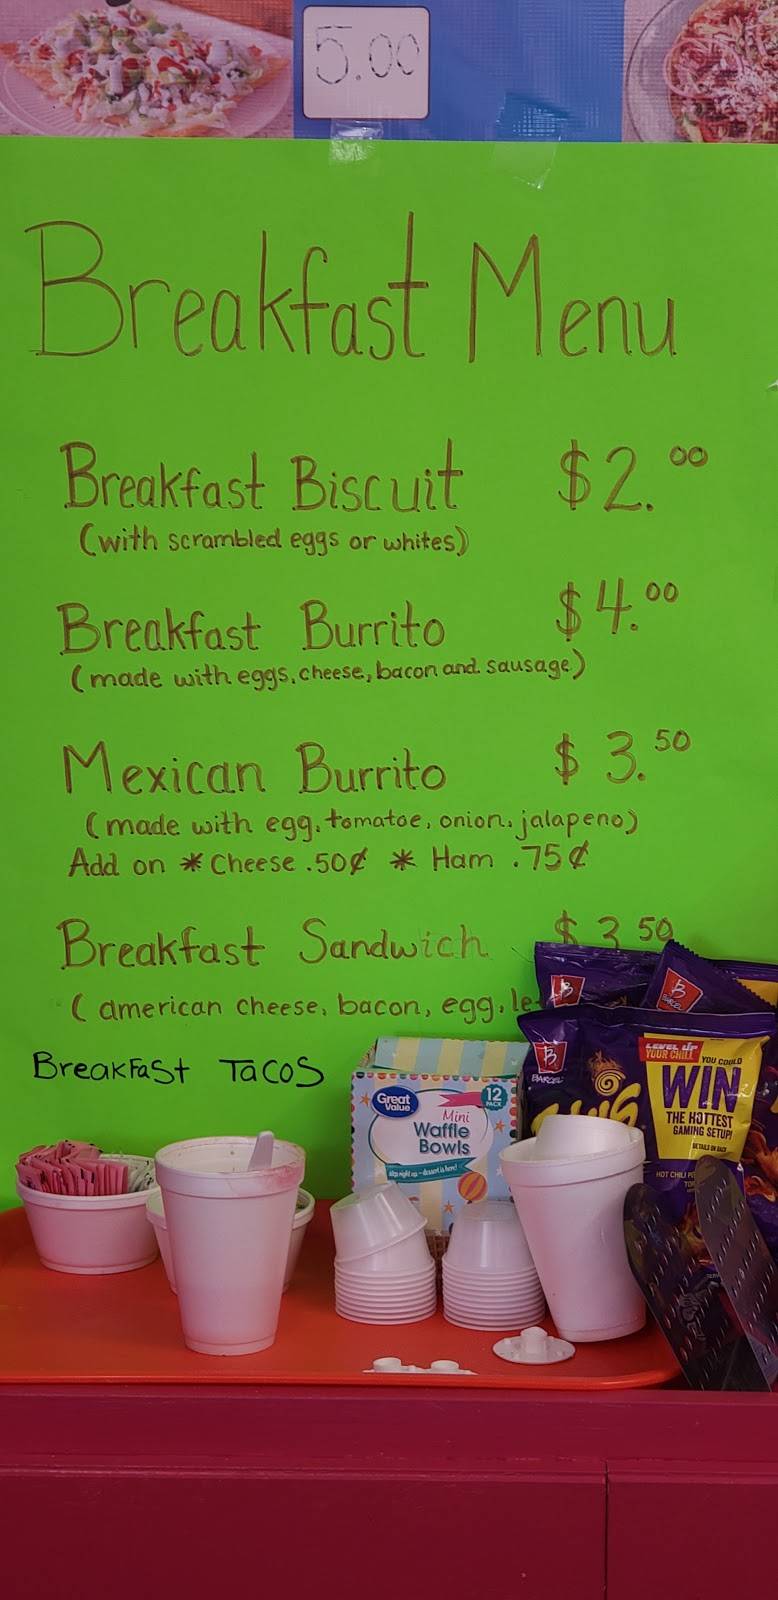 5.00
Breakfast Menu
Breakfast Biscuit $2.00
(with scrambled eggs or whites)
Breakfast Burrito $4.00
(made with eggs, cheese, bacon and sausage)
Mexican Burrito $3.50
(made with egg, tomatoe, onion, jalapeno)
Add on * Cheese .50¢ * Ham .75¢
Breakfast Sandwich $3.50
(american cheese, bacon, egg, le
Breakfast Tacos
Great Value
12 PACK
Mini
Waffle
Bowls
BARCEL
LEVEL UP
YOUR CHILL
YOU COULD
WIN
THE HOTTEST
GAMING SETUP!
DETAILS ON BACK
HOT CHILI